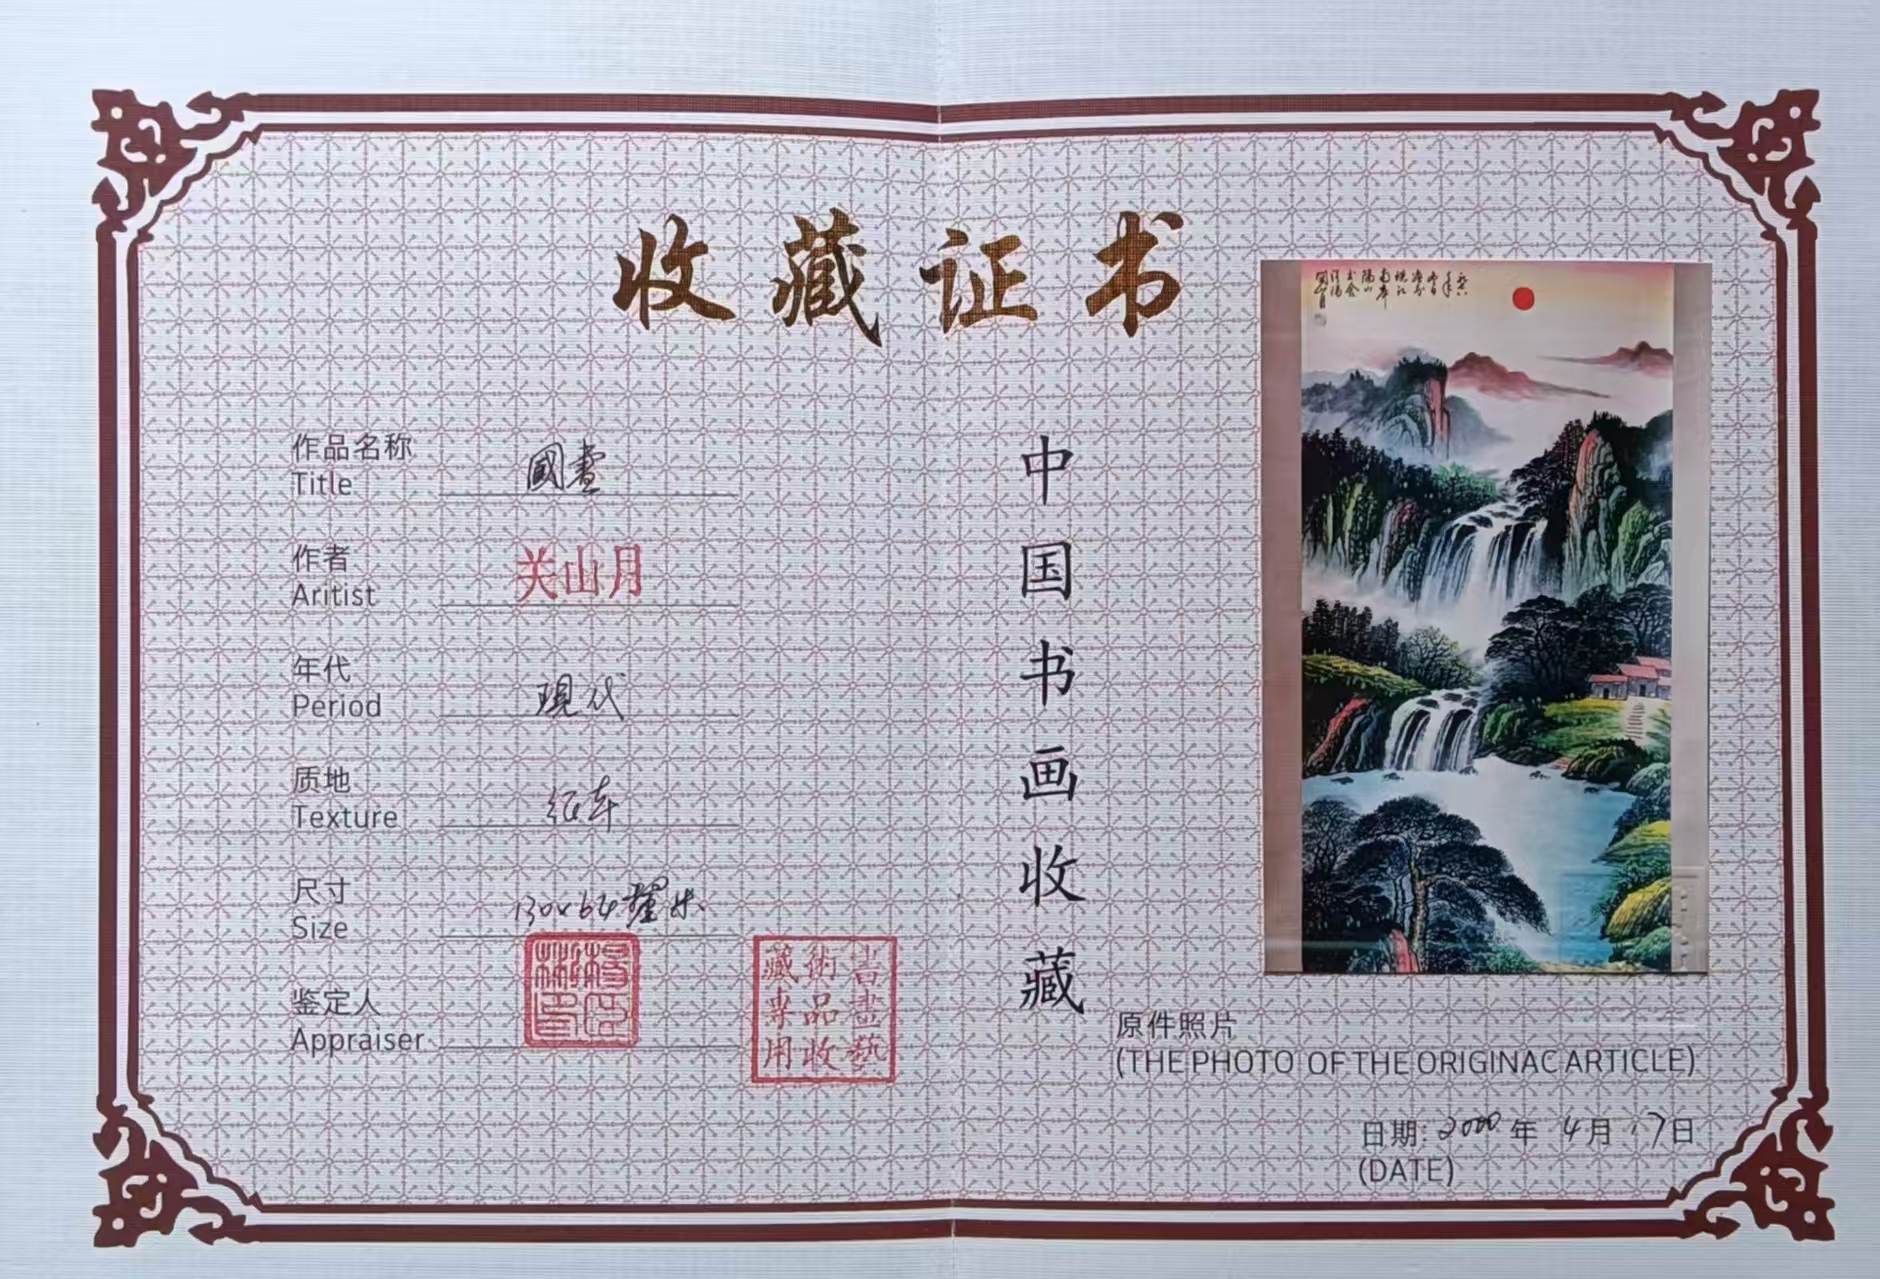 收藏证书
作品名称
Title
國畫
作者
Aritist
关山月
年代
Period
現代
质地
Texture
纸本
尺寸
Size
130x64釐米
鉴定人
Appraiser
書畫藝
術品收
藏專用
中国书画收藏
關山月
原件照片
(THE PHOTO OF THE ORIGINAC ARTICLE)
日期:2000年4月17日
(DATE)